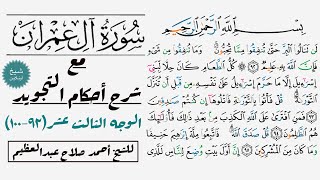 سُورَةُ آلِ عِمْرَان
مع
شرح أحكام التجويد
الوجه الثالث عشر (٩٢-١٠٠)
للشيخ أحمد صلاح عبدالعظيم
بِسْمِ اللَّهِ الرَّحْمَٰنِ الرَّحِيمِ
لَن تَنَالُوا۟ ٱلْبِرَّ حَتَّىٰ تُنفِقُوا۟ مِمَّا تُحِبُّونَ وَمَا تُنفِقُوا۟ مِن شَىْءٍ
فَإِنَّ ٱللَّهَ بِهِۦ عَلِيمٌ ٩٢ ۞ كُلُّ ٱلطَّعَامِ كَانَ حِلًّا لِّبَنِىٓ
إِسْرَٰٓءِيلَ إِلَّا مَا حَرَّمَ إِسْرَٰٓءِيلُ عَلَىٰ نَفْسِهِۦ مِن قَبْلِ أَن تُنَزَّلَ
ٱلتَّوْرَىٰةُ قُلْ فَأْتُوا۟ بِٱلتَّوْرَىٰةِ فَٱتْلُوهَآ إِن كُنتُمْ صَٰدِقِينَ ٩٣
فَمَنِ ٱفْتَرَىٰ عَلَى ٱللَّهِ ٱلْكَذِبَ مِنۢ بَعْدِ ذَٰلِكَ فَأُو۟لَٰٓئِكَ
هُمُ ٱلظَّٰلِمُونَ ٩٤ قُلْ صَدَقَ ٱللَّهُ فَٱتَّبِعُوا۟ مِلَّةَ إِبْرَٰهِيمَ حَنِيفًا
وَمَا كَانَ مِنَ ٱلْمُشْرِكِينَ ٩٥ إِنَّ أَوَّلَ بَيْتٍ وُضِعَ لِلنَّاسِ لَلَّذِى